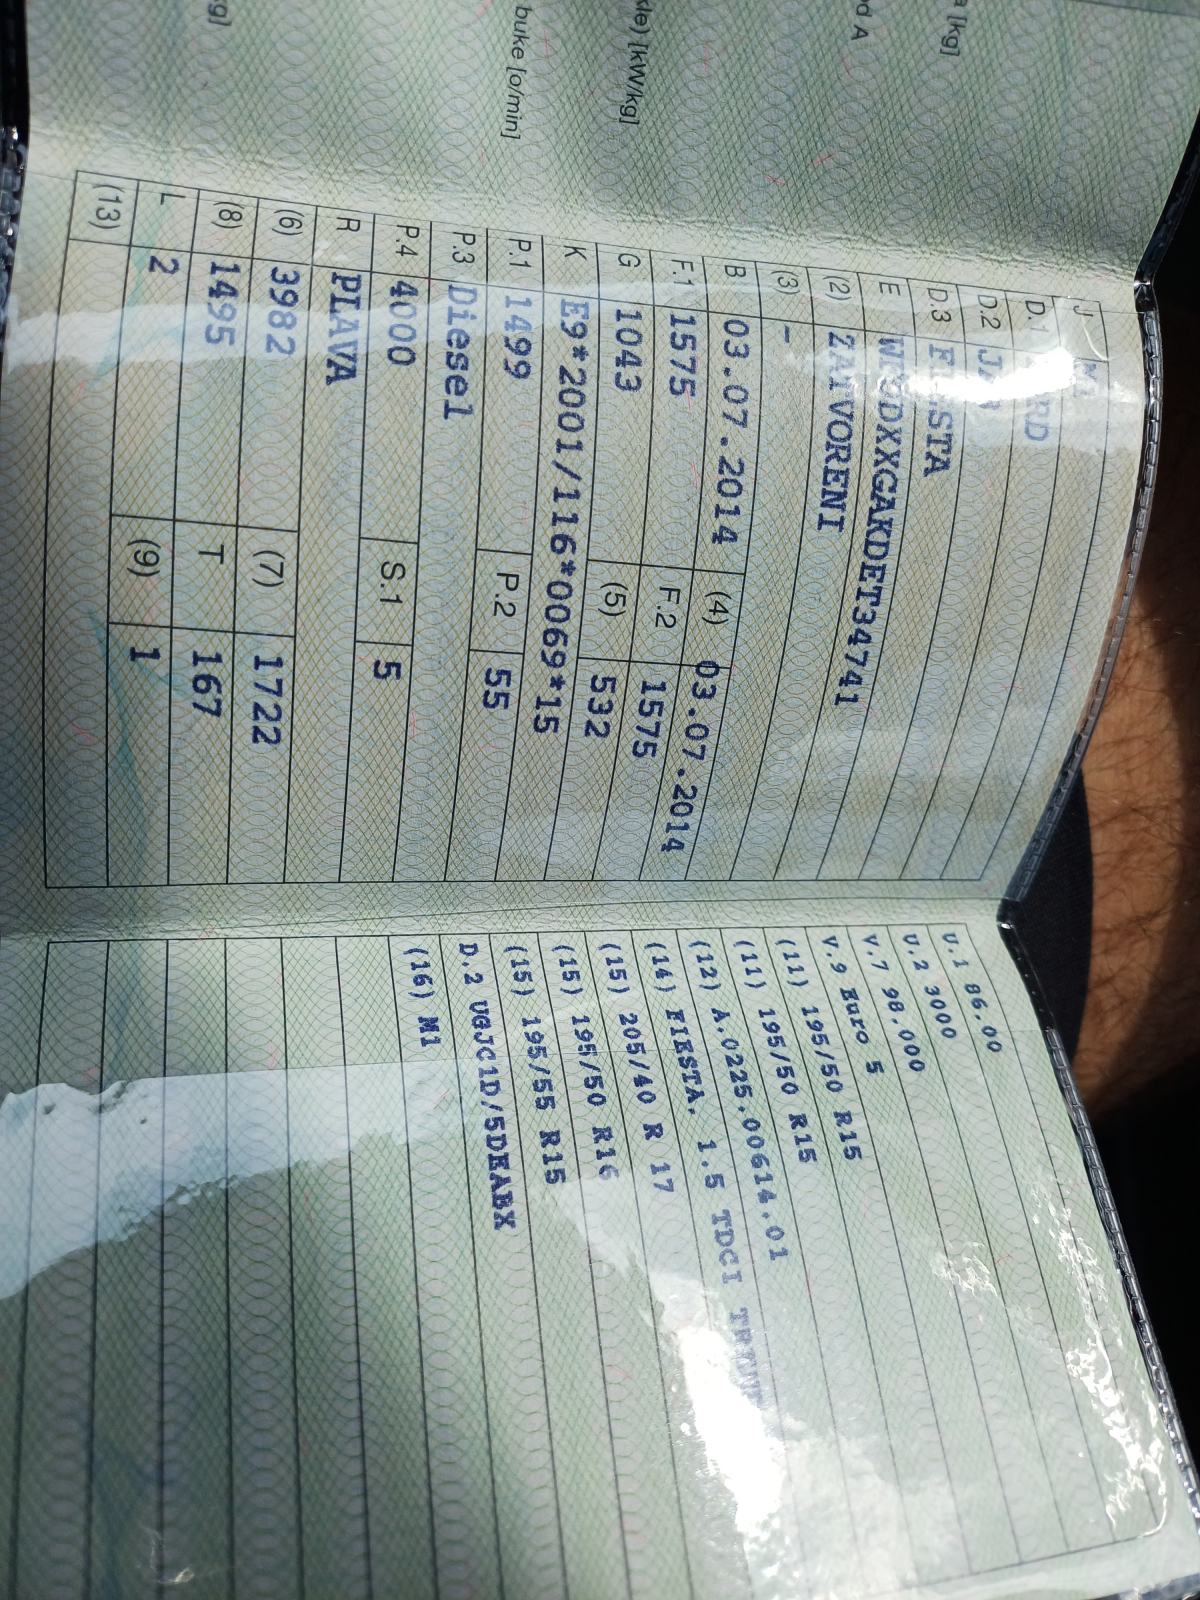 a [kg]
d A
kle) [kW/kg]
buke [o/min]
g]
J M1
D.1
D.2
D.3
E
(2) ZATVORENI
(3) -
B 03.07.2014 (4) 03.07.2014
F.1 1575 F.2 1575
G 1043 (5) 532
K E9*2001/116*0069*15
P.1 1499 P.2 55
P.3 Diesel
P.4 4000 S.1 5
R PLAVA
(6) 3982 (7) 1722
(8) 1495 T 167
L 2 (9) 1
(13)
U.1 86.00
U.2 3000
V.7 98.000
V.9 Euro 5
(11) 195/50 R15
(11) 195/50 R15
(12) A.0225.00614.01
(14) FIESTA, 1.5 TDCI
(15) 205/40 R 17
(15) 195/50 R16
(15) 195/55 R15
D.2 UGJC1D/5DEABX
(16) M1